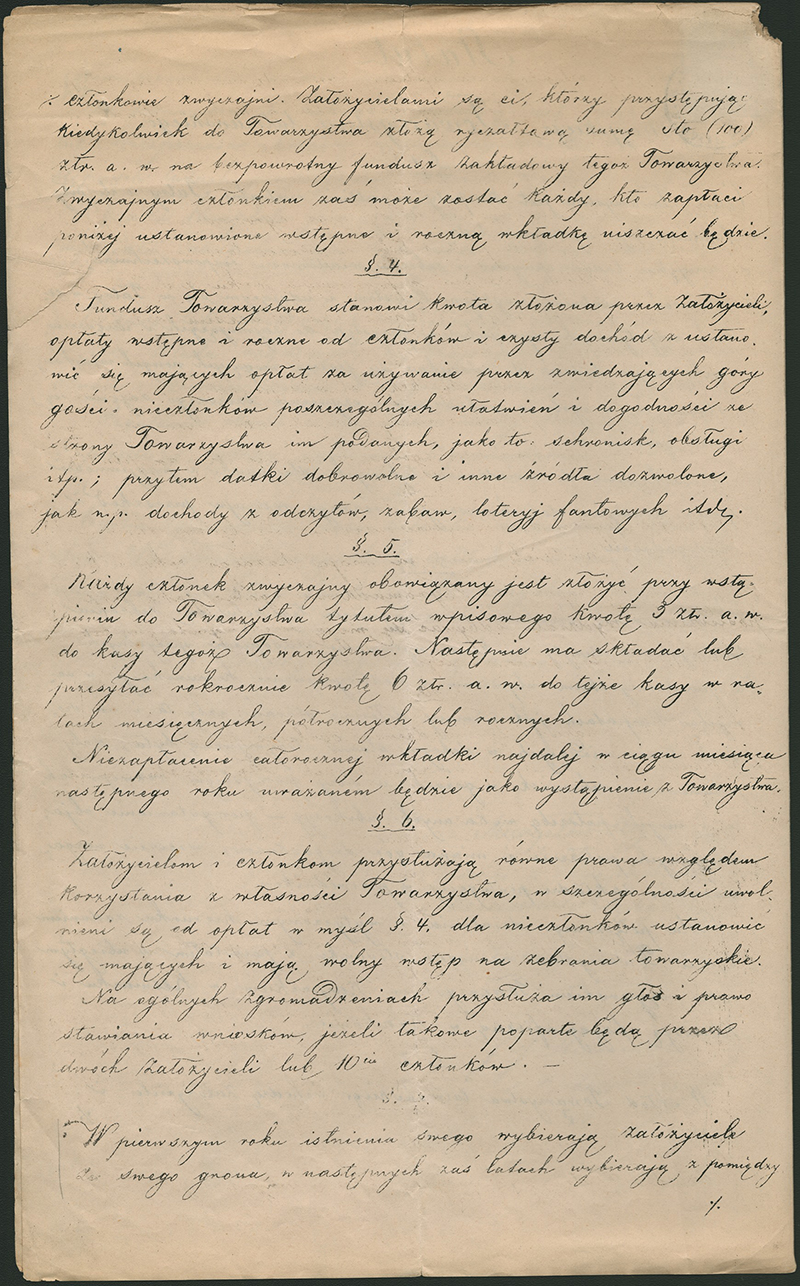 ⁒ członkowie zwyczajni. Założycielami są ci, którzy przystępując
kiedykolwiek do Towarzystwa złożą ryczałtową sumę sto (100)
złr. a. w. na bezpowrotny fundusz zakładowy tegoż Towarzystwa.
Zwyczajnym członkiem zaś może zostać każdy, kto zapłaci
poniżej ustanowione wstępne i roczną wkładkę uiszczać będzie.
§. 4.
Fundusz Towarzystwa stanowi kwota złożona przez Założycieli,
opłaty wstępne i roczne od członków i czysty dochód z ustano-
wić się mających opłat za używanie przez zwiedzających góry
gości nieczłonków poszczególnych ułatwień i dogodności ze
strony Towarzystwa im podanych, jako to: schronisk, obsługi
itp.; przytem datki dobrowolne i inne źródła dozwolone,
jak n.p. dochody z odczytów, zabaw, loteryj fantowych itd.
§. 5.
Każdy członek zwyczajny obowiązany jest złożyć przy wstą-
pieniu do Towarzystwa tytułem wpisowego kwotę 3 złr. a. w.
do kasy tegoż Towarzystwa. Następnie ma składać lub
przesyłać rokrocznie kwotę 6 złr. a. w. do tejże kasy w ra-
tach miesięcznych, półrocznych lub rocznych.
Niezapłacenie całorocznej wkładki najdalej w ciągu miesiąca
następnego roku uważaném będzie jako wystąpienie z Towarzystwa.
§. 6.
Założycielom i członkom przysłużają równe prawa względem
korzystania z własności Towarzystwa, w szczególności uwol-
nieni są od opłat w myśl §. 4. dla nieczłonków ustanowić
się mających i mają wolny wstęp na zebrania towarzyskie.
Na ogólnych zgromadzeniach przysłuża im głos i prawo
stawiania wniosków, jeżeli takowe poparte będą przez
dwóch Założycieli lub 10ciu członków. —
W pierwszym roku istnienia swego wybierają założyciele
ze swego grona, w następnych zaś latach wybierają z pomiędzy
⁒